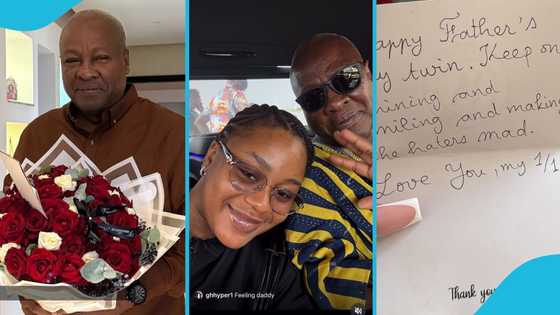 ghhyper1 Feeling daddy
appy Father's
y twin. Keep on
ining and
miling and making
he haters mad.
Love You, my 1/1
Thank you